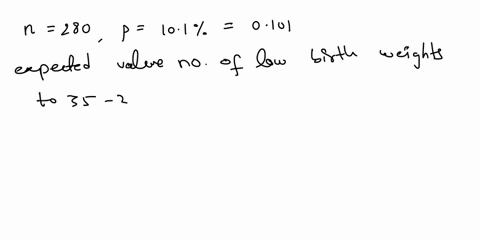 n = 280, p = 10.1% = 0.101
expected value no. of low birth weights
to 35-2